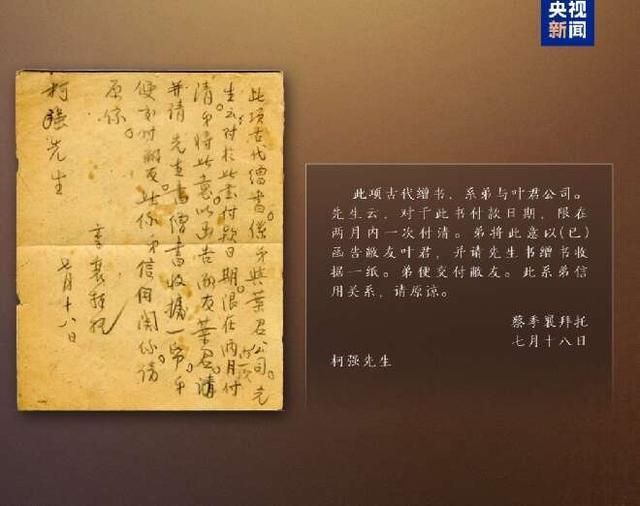 央视
新闻
此項古代繒書。係弟與葉君公司。先
生云。对於此書付款日期。限在兩月內一次付
清。弟將此意以函告敝友葉君。
并請先生書繒書收據一帋。弟
便交付敝友。此係弟信用關係。請
原諒。
季襄拜托
七月十八日
柯强先生
此项古代缯书，系弟与叶君公司。
先生云，对于此书付款日期，限在
两月内一次付清。弟将此意以(已)
函告敝友叶君，并请先生书缯书收
据一纸。弟便交付敝友。此系弟信
用关系，请原谅。
蔡季襄拜托
七月十八日
柯强先生